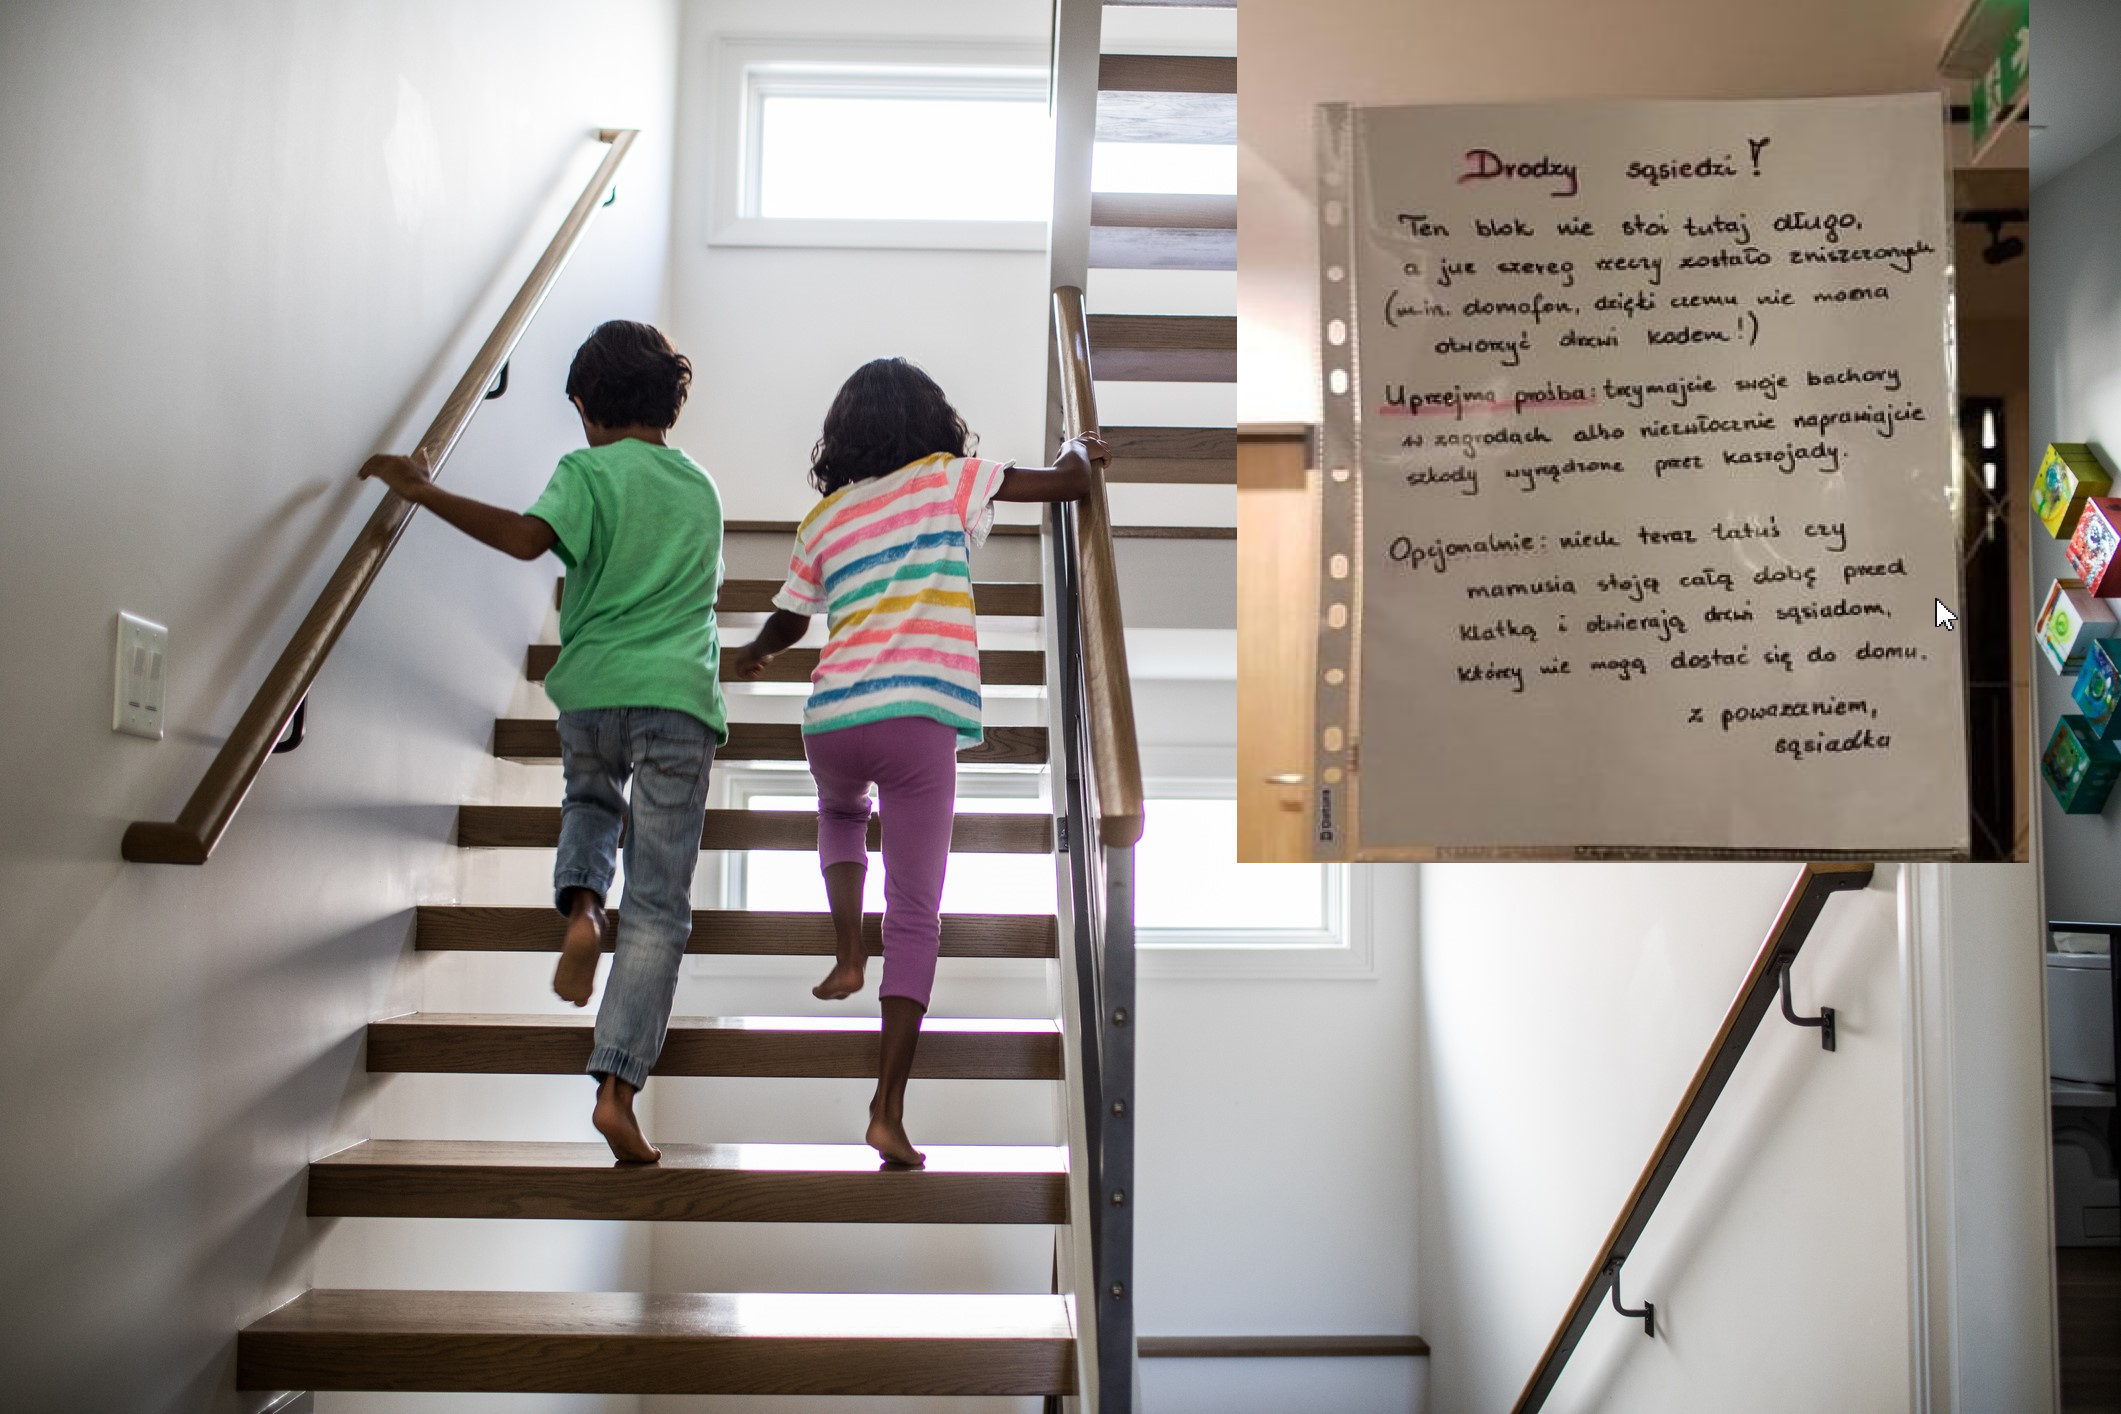 Drodzy sąsiedzi!
Ten blok nie stoi tutaj długo,
a już szereg rzeczy zostało zniszczonych
(m.in. domofon, dzięki czemu nie można
otworzyć drzwi kodem!)
Uprzejma prośba: trzymajcie swoje bachory
w zagrodach albo niezwłocznie naprawiajcie
szkody wyrządzone przez kaszojady.
Opcjonalnie: niech teraz tatuś czy
mamusia stoją całą dobę przed
klatką i otwierają drzwi sąsiadom,
którzy nie mogą dostać się do domu.
z poważaniem,
sąsiadka
D Datura